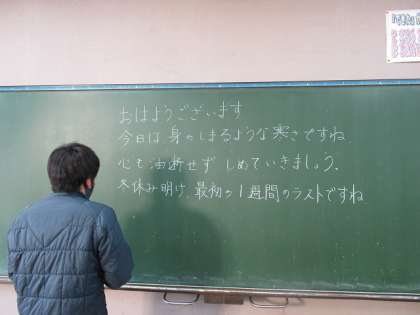 おはようございます
今日は、身のしまるような寒さですね
心も油断せず しめていきましょう.
冬休み明け、最初の1週間のラストですね